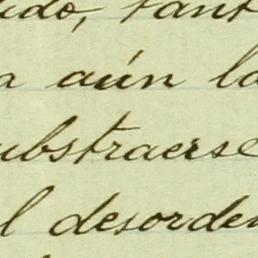 ido, tant
a aún la
ubstraerse
l desorden